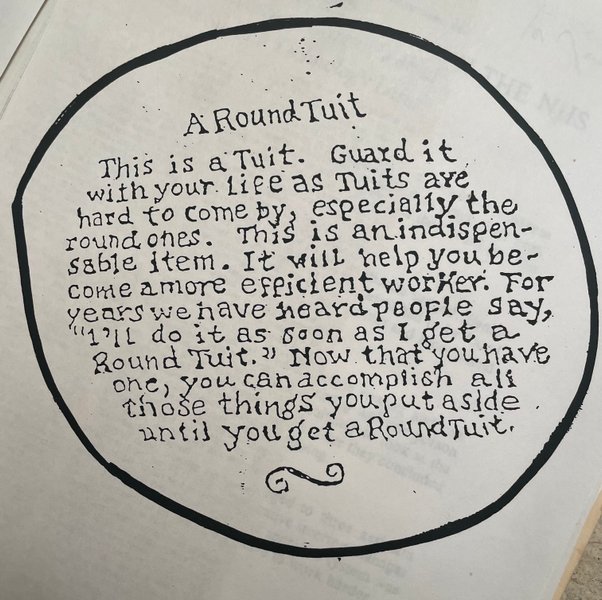 A Round Tuit
This is a Tuit. Guard it
with your life as Tuits are
hard to come by, especially the
round ones. This is an indispen-
sable item. It will help you be-
come a more efficient worker. For
years we have heard people say,
"I'll do it as soon as I get a
Round Tuit." Now that you have
one, you can accomplish all
those things you put aside
until you get a Round Tuit.